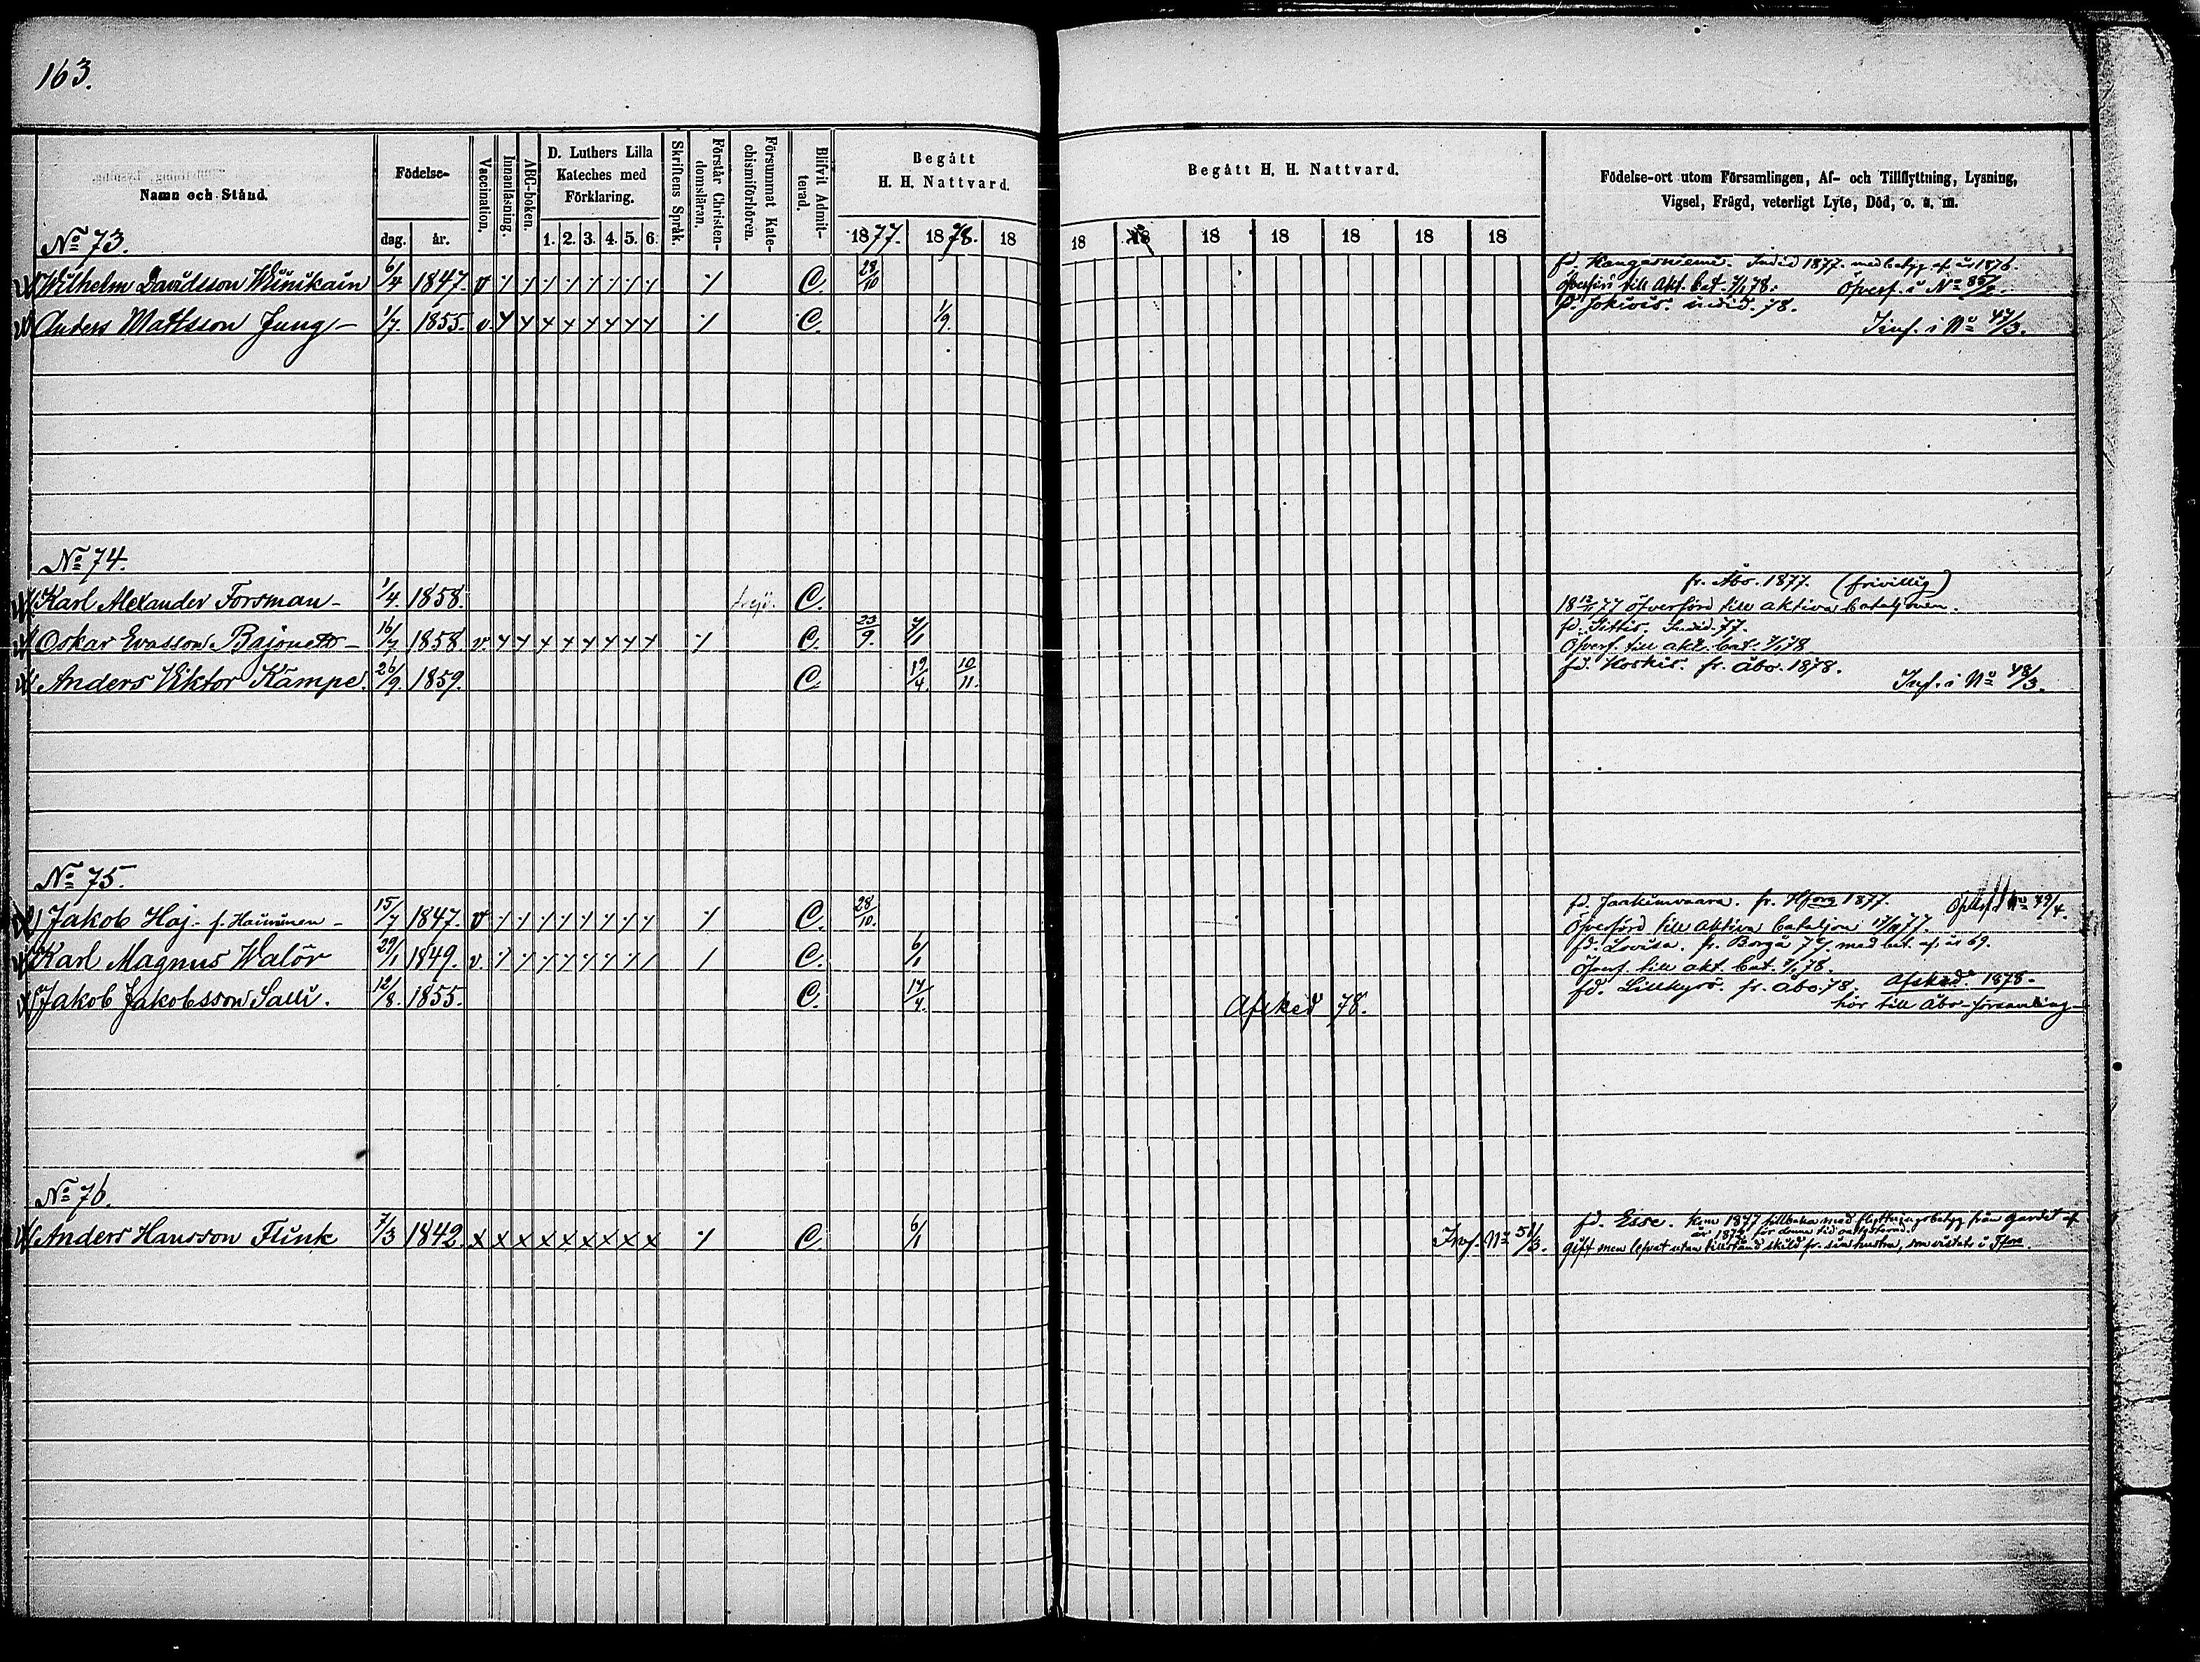 163.
Namn och Stånd.
Födelse-
dag. år.
Vaccination.
Innanläsning.
ABC-boken.
D. Luthers Lilla
Kateches med
Förklaring.
1. 2. 3. 4. 5. 6.
Skriftens Språk.
Förstår Christen-
domsläran.
Försummat Kate-
chismiförhören.
Blifvit Admit-
terad.
Begått
H. H. Nattvard.
1877. 1878. 18
Begått H. H. Nattvard.
18 18 18 18 18 18 18
Födelse-ort utom Församlingen, Af- och Tillflyttning, Lysning,
Vigsel, Frägd, veterligt Lyte, Död, o. s. m.
No 73.
Wilhelm Davidsson Winikain 6/4 1847. v C. 28/10 fd. Kangasniemi. Indid 1877. med betyg af år 1876.
Öfverförd till Akt. bat. 7/1 78. Öfverf. i No
Anders Mattsson Jung 1/7. 1855. v. C. 1/9. fd. Jokiois. indid. 78.
Inf. i No 47/3.
No 74.
Karl Alexander Forsman 1/4. 1858. C. fr. Åbo. 1877. (frivillig)
18 77 öfverförd till aktiva bataljonen.
Oskar Evasson Bajonett 16/7 1858 v. C. 23/9. 7/1 fd. Sittis. Indid. 77.
Öfverf. till akt. bat. 7/1 78
Anders Viktor Kämpe. 26/9. 1859. C. 19/4. 10/11. fd. Koskis. fr. Åbo. 1878.
Inf. i No 48/3.
No 75.
Jakob Haj f. Hainonen 15/7 1847. v C. 28/10. fd. Jaakimvaara. fr. Hfors 1877.
Öfverförd till Aktiva bataljon 77.
Karl Magnus Walör 29/1 1849. v. C. 6/1 fd. Lovisa. fr. Borgå 77. med bet. af år 69.
Öfverf. till akt. bat. 7/1 78.
Jakob Jakobsson Salli. 12/8. 1855. C. 14/4. Afsked 78. fd. Lillkyro. fr. Åbo 78. Afsked. 1878.
hör till Åbo-församling
No 76.
Anders Hansson Flink 7/3 1842. C. 6/1 Inf. No 51/3. fd. Esse. Kom 1877 tillbaka med flyttningsbetyg från Gardet af
år 1872, för denna tid
gift men lefvat utan tillstånd skild fr. sin hustru, som vistats i